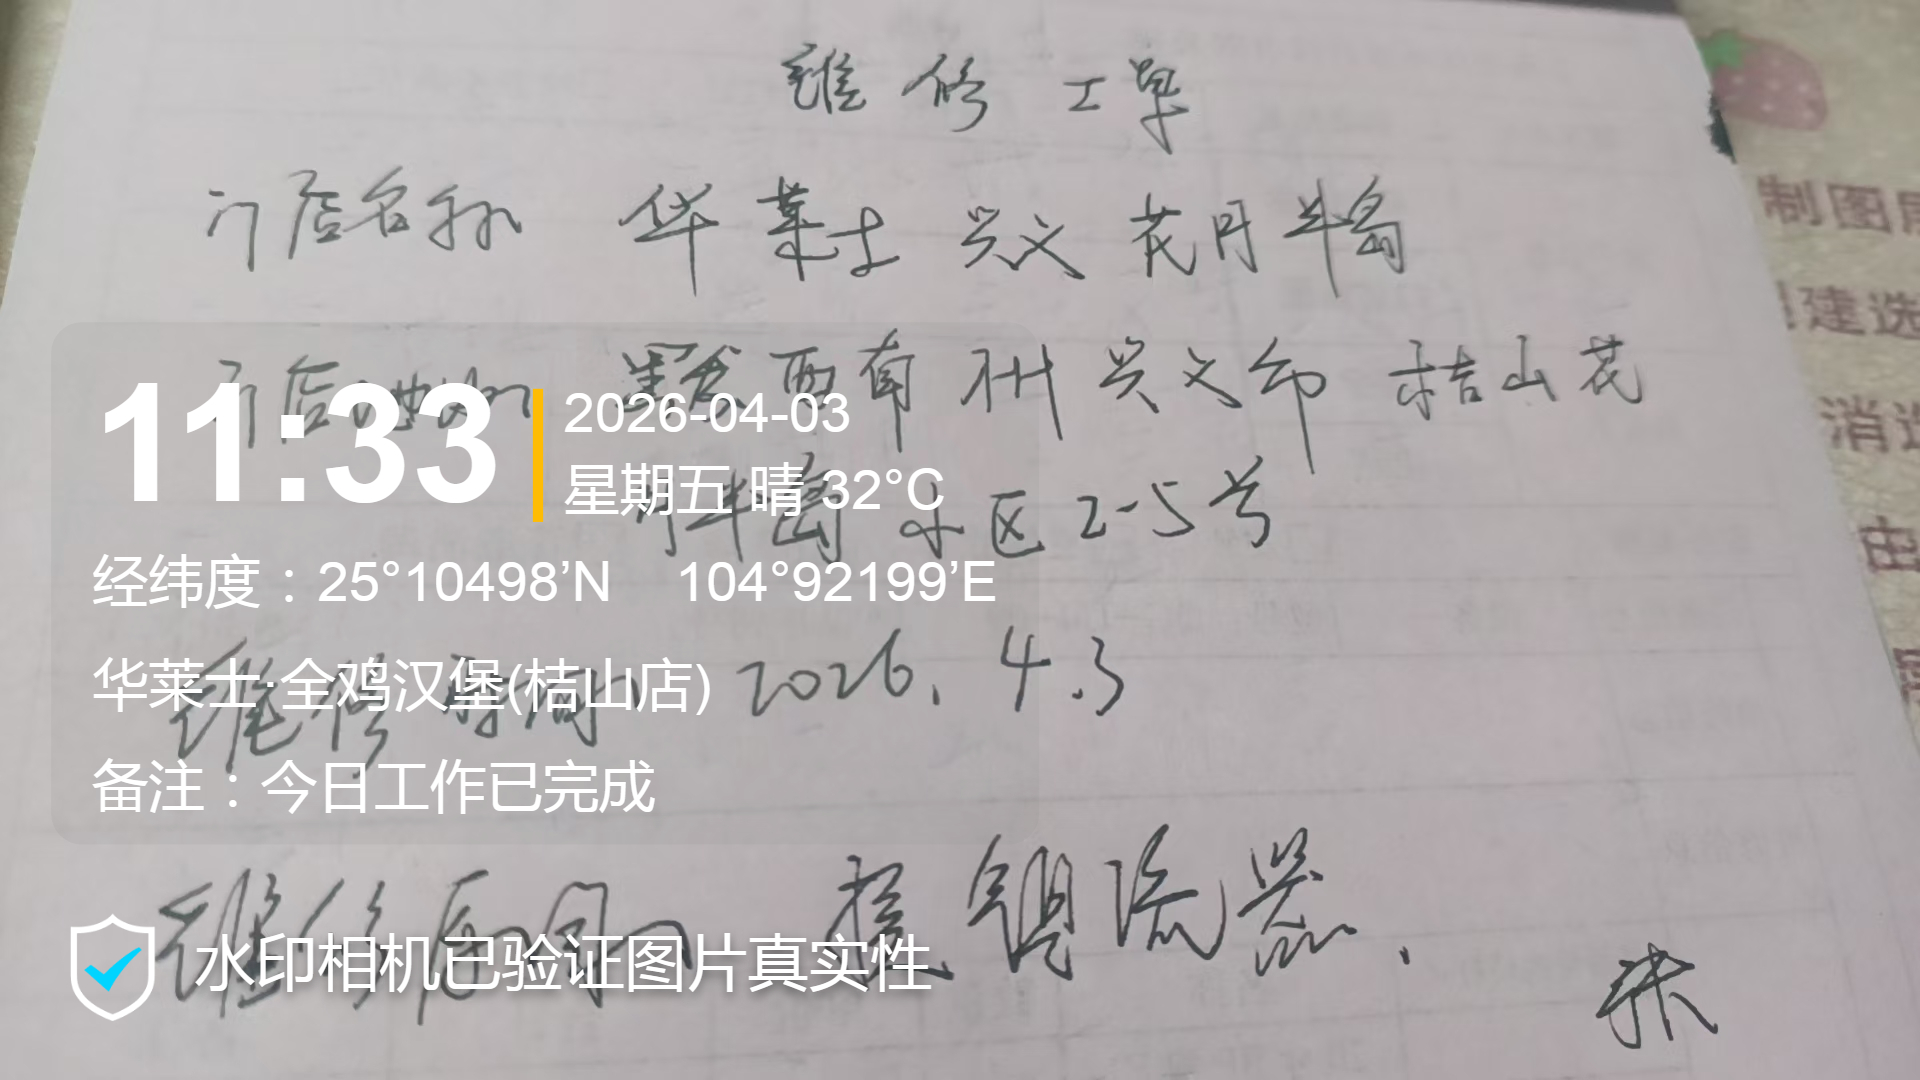 维修工单
门店名称 华莱士兴义花月半岛
门店地址 黔西南州兴义市桔山花
月半岛小区2-5号
11:33
2026-04-03
星期五 晴 32°C
经纬度：25°10498’N 104°92199’E
维修时间 2026.4.3
华莱士·全鸡汉堡(桔山店)
备注：今日工作已完成
维修
水印相机已验证图片真实性
制图
建选
消选
由